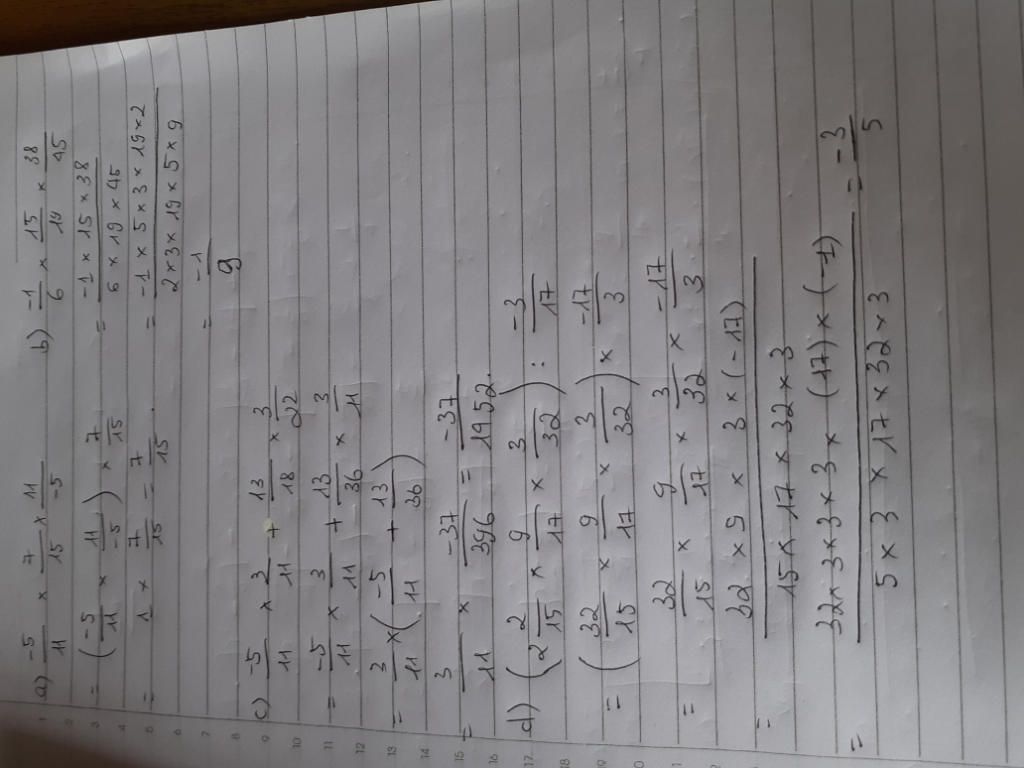 a) -5/11 × 7/15 × 11/-5
= (-5/11 × 11/-5) × 7/15
= 1 × 7/15 = 7/15.
b) -1/6 × 15/19 × 38/45
= -1 × 15 × 38 / 6 × 19 × 45
= -1 × 5 × 3 × 19 × 2 / 2 × 3 × 19 × 5 × 9
= -1/9
c) -5/11 × 3/11 + 13/18 × 3/22
= -5/11 × 3/11 + 13/36 × 3/11
= 3/11 × (-5/11 + 13/36)
= 3/11 × -37/396 = -37/1452.
d) (2 2/15 × 9/17 × 3/32) : -3/17
= (32/15 × 9/17 × 3/32) × -17/3
= 32/15 × 9/17 × 3/32 × -17/3
= 32 × 9 × 3 × (-17) / 15 × 17 × 32 × 3
= 32 × 3 × 3 × (17) × (-1) / 5 × 3 × 17 × 32 × 3 = -3/5